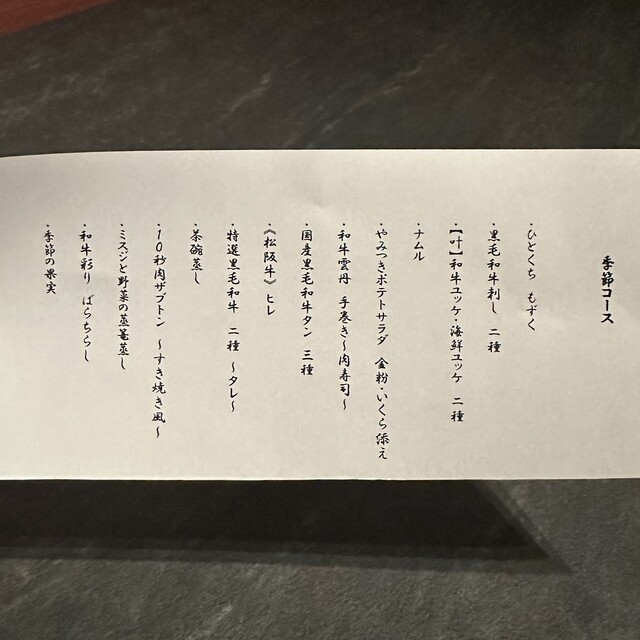 季節コース
・ひとくち もずく
・黒毛和牛刺し 二種
・【叶】和牛ユッケ・海鮮ユッケ 二種
・ナムル
・やみつきポテトサラダ 金粉・いくら添え
・和牛雲丹 手巻き〜肉寿司〜
・国産黒毛和牛タン 三種
・《松阪牛》ヒレ
・特選黒毛和牛 二種 〜タレ〜
・茶碗蒸し
・10秒肉ザブトン 〜すき焼き風〜
・ミスジと野菜の蒸篭蒸し
・和牛彩り ばらちらし
・季節の果実